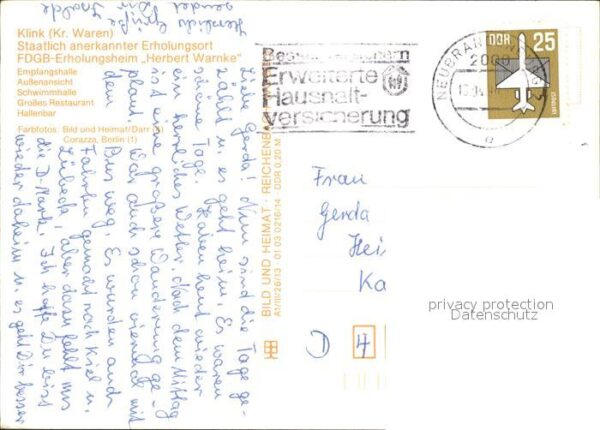 Klink (Kr. Waren)
Staatlich anerkannter Erholungsort
FDGB-Erholungsheim „Herbert Warnke"
Empfangshalle
Außenansicht
Schwimmhalle
Großes Restaurant
Hallenbar
Farbfotos: Bild und Heimat/Darr (5)
Corazza, Berlin (1)
BILD UND HEIMAT · REICHENBA
A1/III/26/13 · 01 03 0216/14 DDR 0,20 M
Besser versichern
Erweiterte
Haushalt-
versicherung
NEUBRANDENBURG 2
2000
e
DDR 25
Liebe Gerda! Nun sind die Tage ge-
zählt u. es geht heim. Es waren
schöne Tage. Haben heut wieder
ein herrliches Wetter. Nach dem Mittag
ist eine größere Wanderung ge-
plant. War auch schon viermal mit
dem Bus weg. Es wurden auch
Fahrten gemacht nach Kiel u.
Lübeck, aber dazu fehlt uns
die D-Mark. Ich hoffe Du bist
wieder daheim u. es geht Dir besser
Herzliche Grüße
sendet Dir
Isolde
Frau
Gerda
Hei
Ka
D 4
privacy protection
Datenschutz